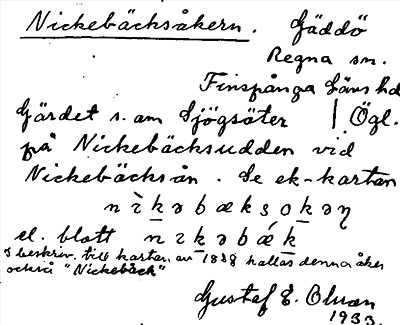 Nickebäcksåkern. Gäddö
Regna sn.
Finspånga läns hd
Gärdet s. om Sjögsäter | Ögl.
på Nickebäcksudden vid
Nickebäcksån. Se ek-kartan
n ì k ə b æ k s o k ə n
el. blott n ɪ k ə b æ k
I beskriv. till kartan av 1838 kallas denna åker
också "Nickebäck"
Gustaf E. Olsson
1933.